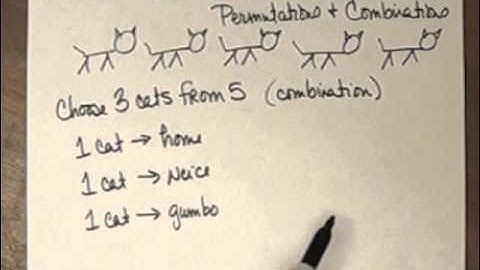 Permutations + Combinations
Choose 3 cats from 5 (combination)
1 cat → home
1 cat → Neice
1 cat → gumbo